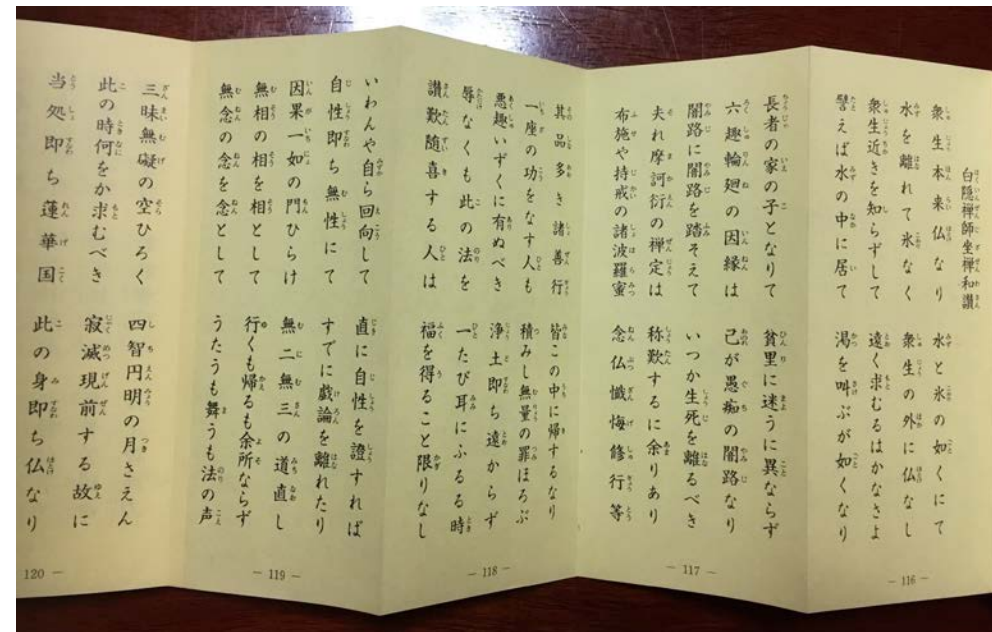 白隠禅師坐禅和讃
衆生本来仏なり 水と氷の如くにて
水を離れて氷なく 衆生の外に仏なし
衆生近きを知らずして 遠く求むるはかなさよ
譬えば水の中に居て 渇を叫ぶが如くなり
− 116 −
長者の家の子となりて 貧里に迷うに異ならず
六趣輪廻の因縁は 己が愚痴の闇路なり
闇路に闇路を踏そえて いつか生死を離るべき
夫れ摩訶衍の禅定は 称歎するに余りあり
布施や持戒の諸波羅蜜 念仏懺悔修行等
− 117 −
其品多き諸善行 皆この中に帰するなり
一座の功をなす人も 積みし無量の罪ほろぶ
悪趣いずくに有ぬべき 浄土即ち遠からず
辱なくも此の法を 一たび耳にふるる時
讃歎随喜する人は 福を得ること限りなし
− 118 −
いわんや自ら回向して 直に自性を證すれば
自性即ち無性にて すでに戯論を離れたり
因果一如の門ひらけ 無二無三の道直し
無相の相を相として 行くも帰るも余所ならず
無念の念を念として うたうも舞うも法の声
− 119 −
三昧無礙の空ひろく 四智円明の月さえん
此の時何をか求むべき 寂滅現前する故に
当処即ち蓮華国 此の身即ち仏なり
120 −